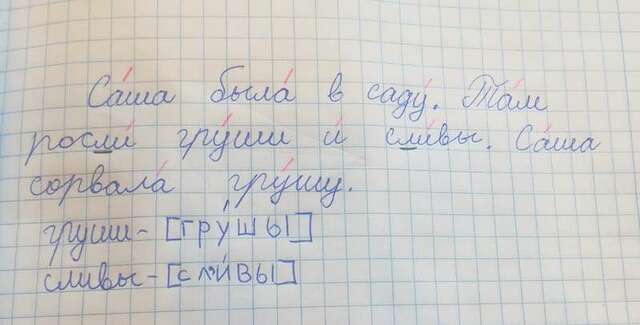 Са́ша была́ в саду́. Та́м
росли́ гру́ши и́ сли́вы. Са́ша
сорвала́ гру́шу.
груши - [гру́шы]
сливы - [сл'и́вы]